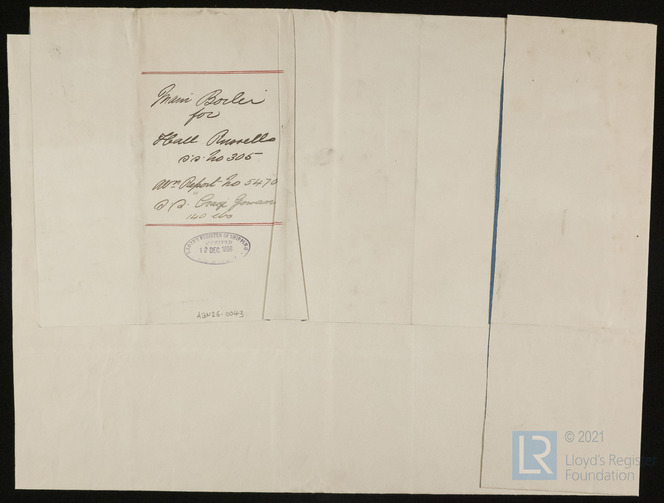 Main Boiler
for
Hall Russells
S.S. No 305
Abn Report No 5470
S.S. "Craig Gowan
140 lbs
LLOYD'S REGISTER OF SHIPPING
12 DEC 1898
ABN26-0043
LR
© 2021
Lloyd's Register
Foundation